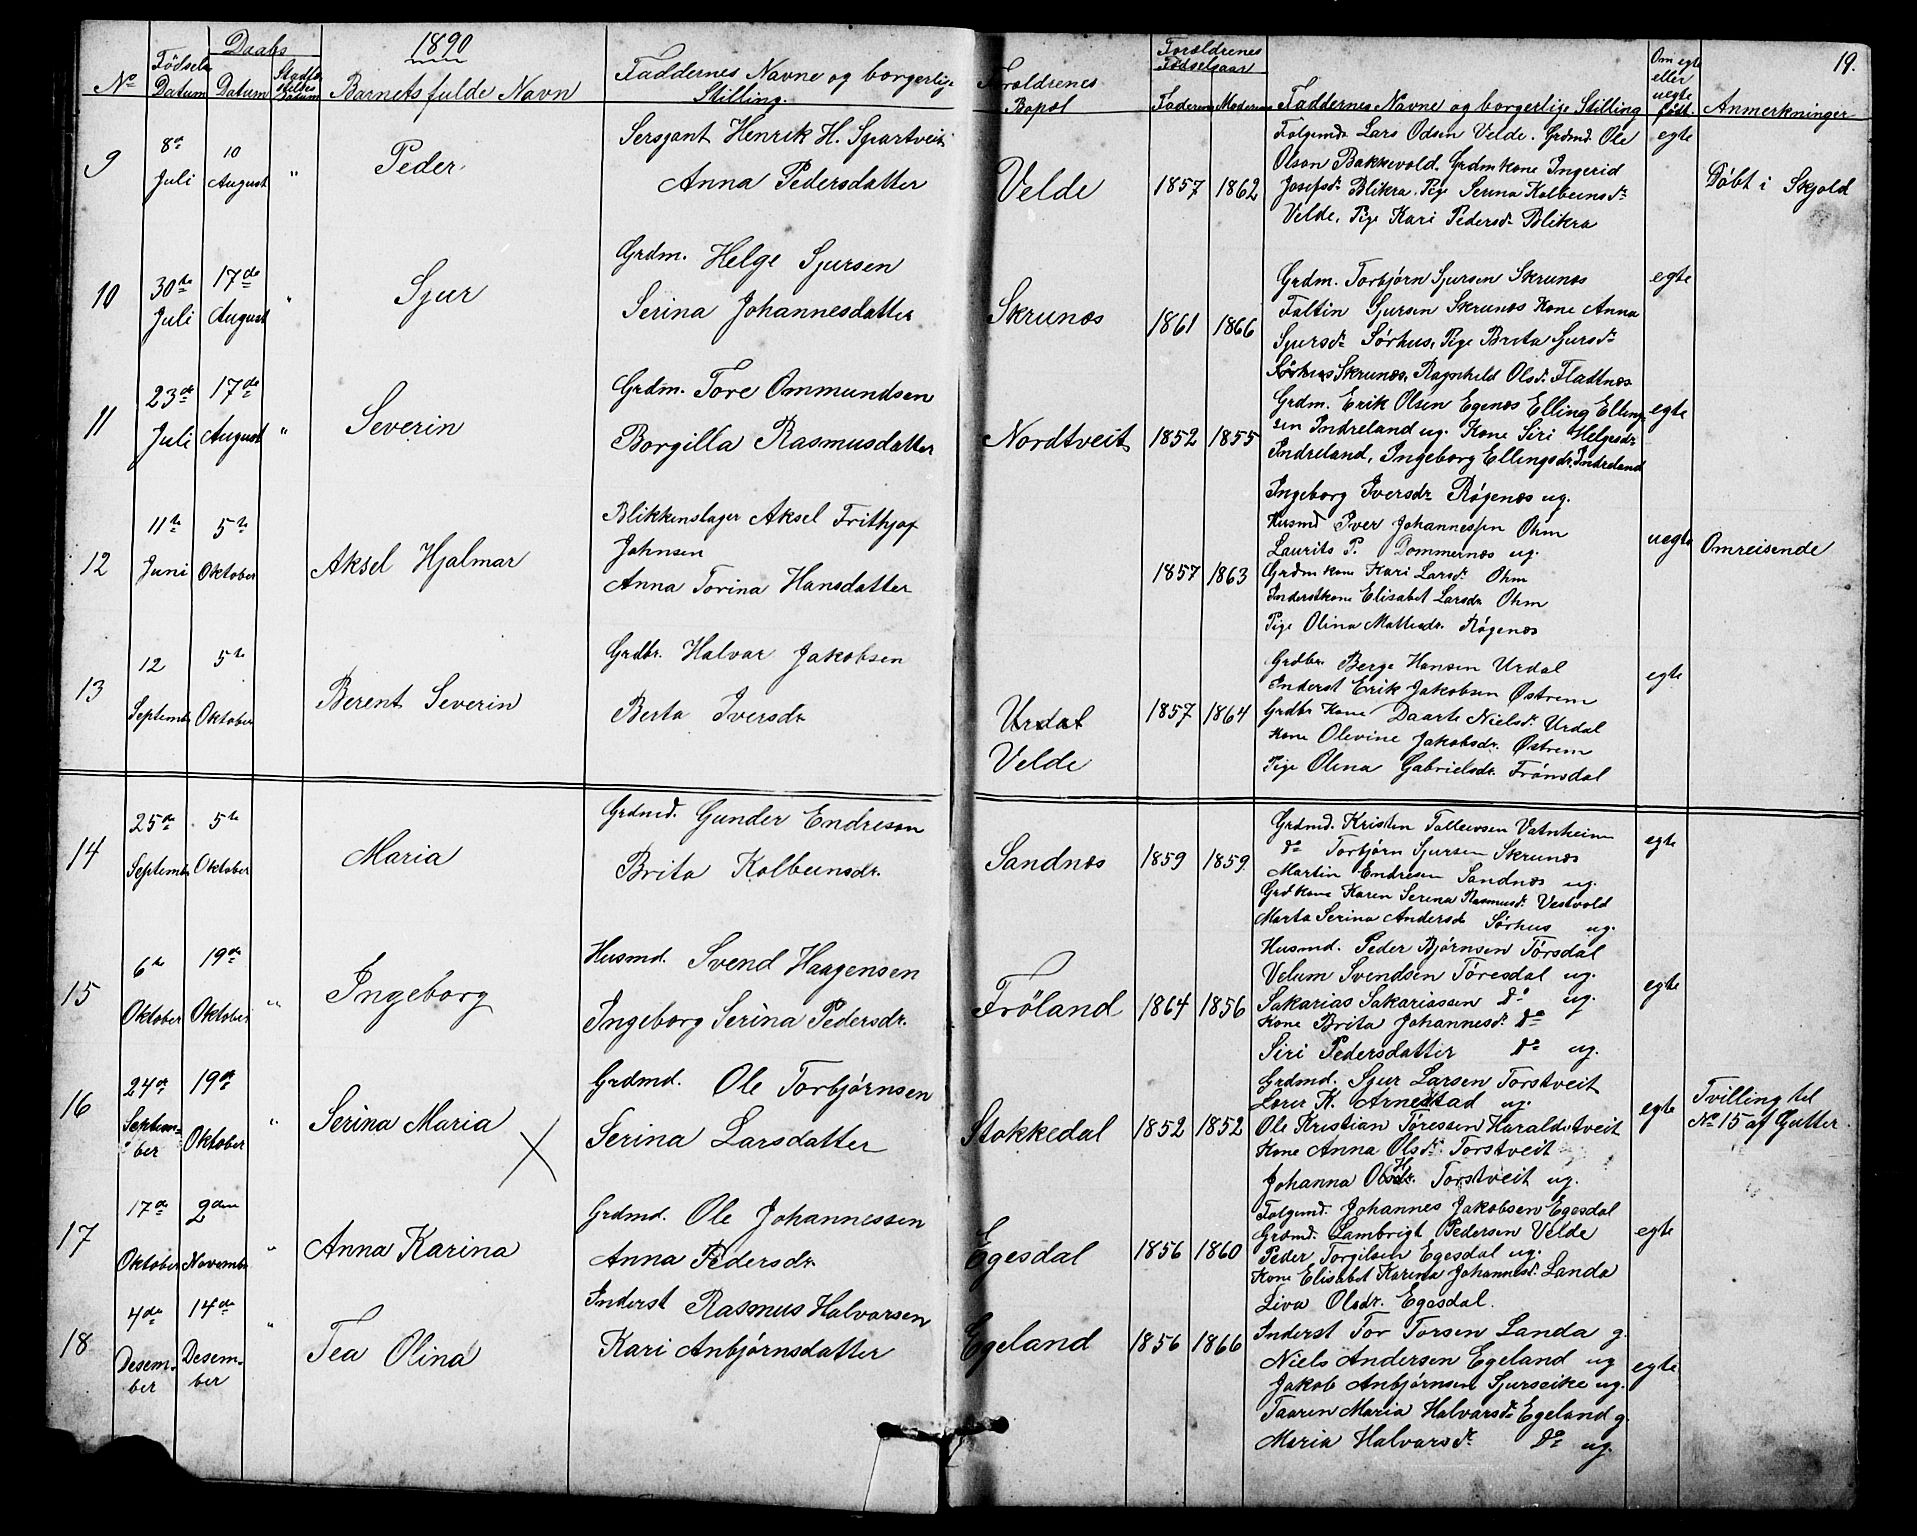 1890
19.
No
Fødsels Datum
Daabs Datum
Stadfæstelses Datum
Barnets fulde Navn
Faddernes Navne og borgerlige Stilling
Forældrenes Bopæl
Forældrenes Fødselsaar
Faderens Moderens
Faddernes Navne og borgerlige Stilling
Om egte eller uegte født
Anmerkninger
9
8de Juli
10 August
"
Peder
Sersjant Henrik H. Spartveit
Anna Pedersdatter
Velde
1857 1862
Folgemd. Lars Odsen Velde. Grdmd. Ole
Olson Bakkevold. Grdmkone Ingerid
Josefsdr. Blikra. Pige Serina Kolbeinsdr.
Velde, Pige Kari Pedersdr. Blikra
egte
Døbt i Skjold
10
30te Juli
17de August
"
Sjur
Grdm. Helge Sjursen
Serina Johannesdatter
Skrunæs
1861 1866
Grdm. Torbjørn Sjursen Skrunæs
Faltin Sjursen Skrunæs Kone Anna
Sjursdr. Sørhus, Pige Brita Sjursdr.
Skrunæs, Ragnhild Olsdr. Fladtnæs
egte
11
23de Juli
17de August
"
Severin
Grdm. Tore Ommundsen
Borgilla Rasmusdatter
Nordtveit
1852 1855
Grdm. Erik Olsen Egenæs Elling Elling-
sen Indreland ug. Kone Siri Helgesdr.
Indreland, Ingeborg Ellingsdr. Indreland
Ingeborg Iversdr. Røgenæs ug.
egte
12
11te Juni
5te Oktober
Aksel Hjalmar
Blikkenslager Aksel Frithjof
Johnsen
Anna Torina Hansdatter
1857 1863
Husmd Iver Johannessen Ohm
Laurits P. Dommernæs ug.
Grdm kone Kari Larsdr. Ohm
Inderstkone Elisabet Larsdr. Ohm
Pige Olina Mattesdr. Røgenæs
uegte
Omreisende
13
12 September
5te Oktober
Berent Severin
Grdbr. Halvar Jakobsen
Berta Iversdr.
Urdal
Velde
1857 1864
Grdbr. Berge Hansen Urdal
Inderst Erik Jakobsen Østrem
Grdbr Kone Daarte Nielsdr. Urdal
Kone Olevine Jakobsdr. Østrem
Pige Olena Gabrielsdr. Frønsdal
egte
14
25de September
5te Oktober
Maria
Grdmd. Gunder Endreson
Brita Kolbeinsdr.
Sandnæs
1859 1859
Grdmd. Kristen Tolleivsen Vatnheim
Do Torbjørn Sjursen Skrunæs
Martin Endresen Sandnæs ug.
Grdkone Karen Serena Rasmusdr. Vestvold
Marta Serina Andersdr. Sørhus ug.
egte
15
6te Oktober
19de Oktober
"
Ingeborg
Husmd. Svend Haagensen
Ingeborg Serina Pedersdr.
Frøland
1864 1856
Husmd. Peder Bjørnsen Tørsdal
Velum Svendsen Tøresdal ug.
Sakarias Sakariassen Do ug.
Kone Brita Johannesdr. Do
Siri Pedersdatter Do ug.
egte
16
24de September
19de Oktober
"
Serina Maria
Grdmd. Ole Torbjørnsen
Serina Larsdatter
Stokkedal
1852 1852
Grdmd. Sjur Larsen Torstveit
K. Arnestad ug.
Ole Kristian Tøressen Haraldstveit
Kone Anna Olsdr. Torstveit
Johanna Torstveit ug.
egte
Tvilling til
No 15 af Gutter.
17
17de Oktober
2den November
"
Anna Karina
Grdmd. Ole Johannessen
Anna Pedersdr.
Egesdal
1856 1860
Folgemd. Johannes Jakobsen Egesdal
Grdmd. Lambrigt Pedersen Velde
Peder Torgilsen Egesdal ug.
Kone Elisabet Karina Johannesdr. Landa
Liva Olsdr. Egesdal.
egte
18
4de Desember
14de Desember
"
Tea Olina
Inderst Rasmus Halvarsen
Kari Anbjørnsdatter
Egeland
1856 1866
Inderst Tor Torsen Landa g.
Niels Andersen Egeland ug
Jakob Anbjørnsen Sjurseike ug.
Taaren Maria Halvarsdr. Egeland g.
Maria Halvarsdr. Do ug.
egte